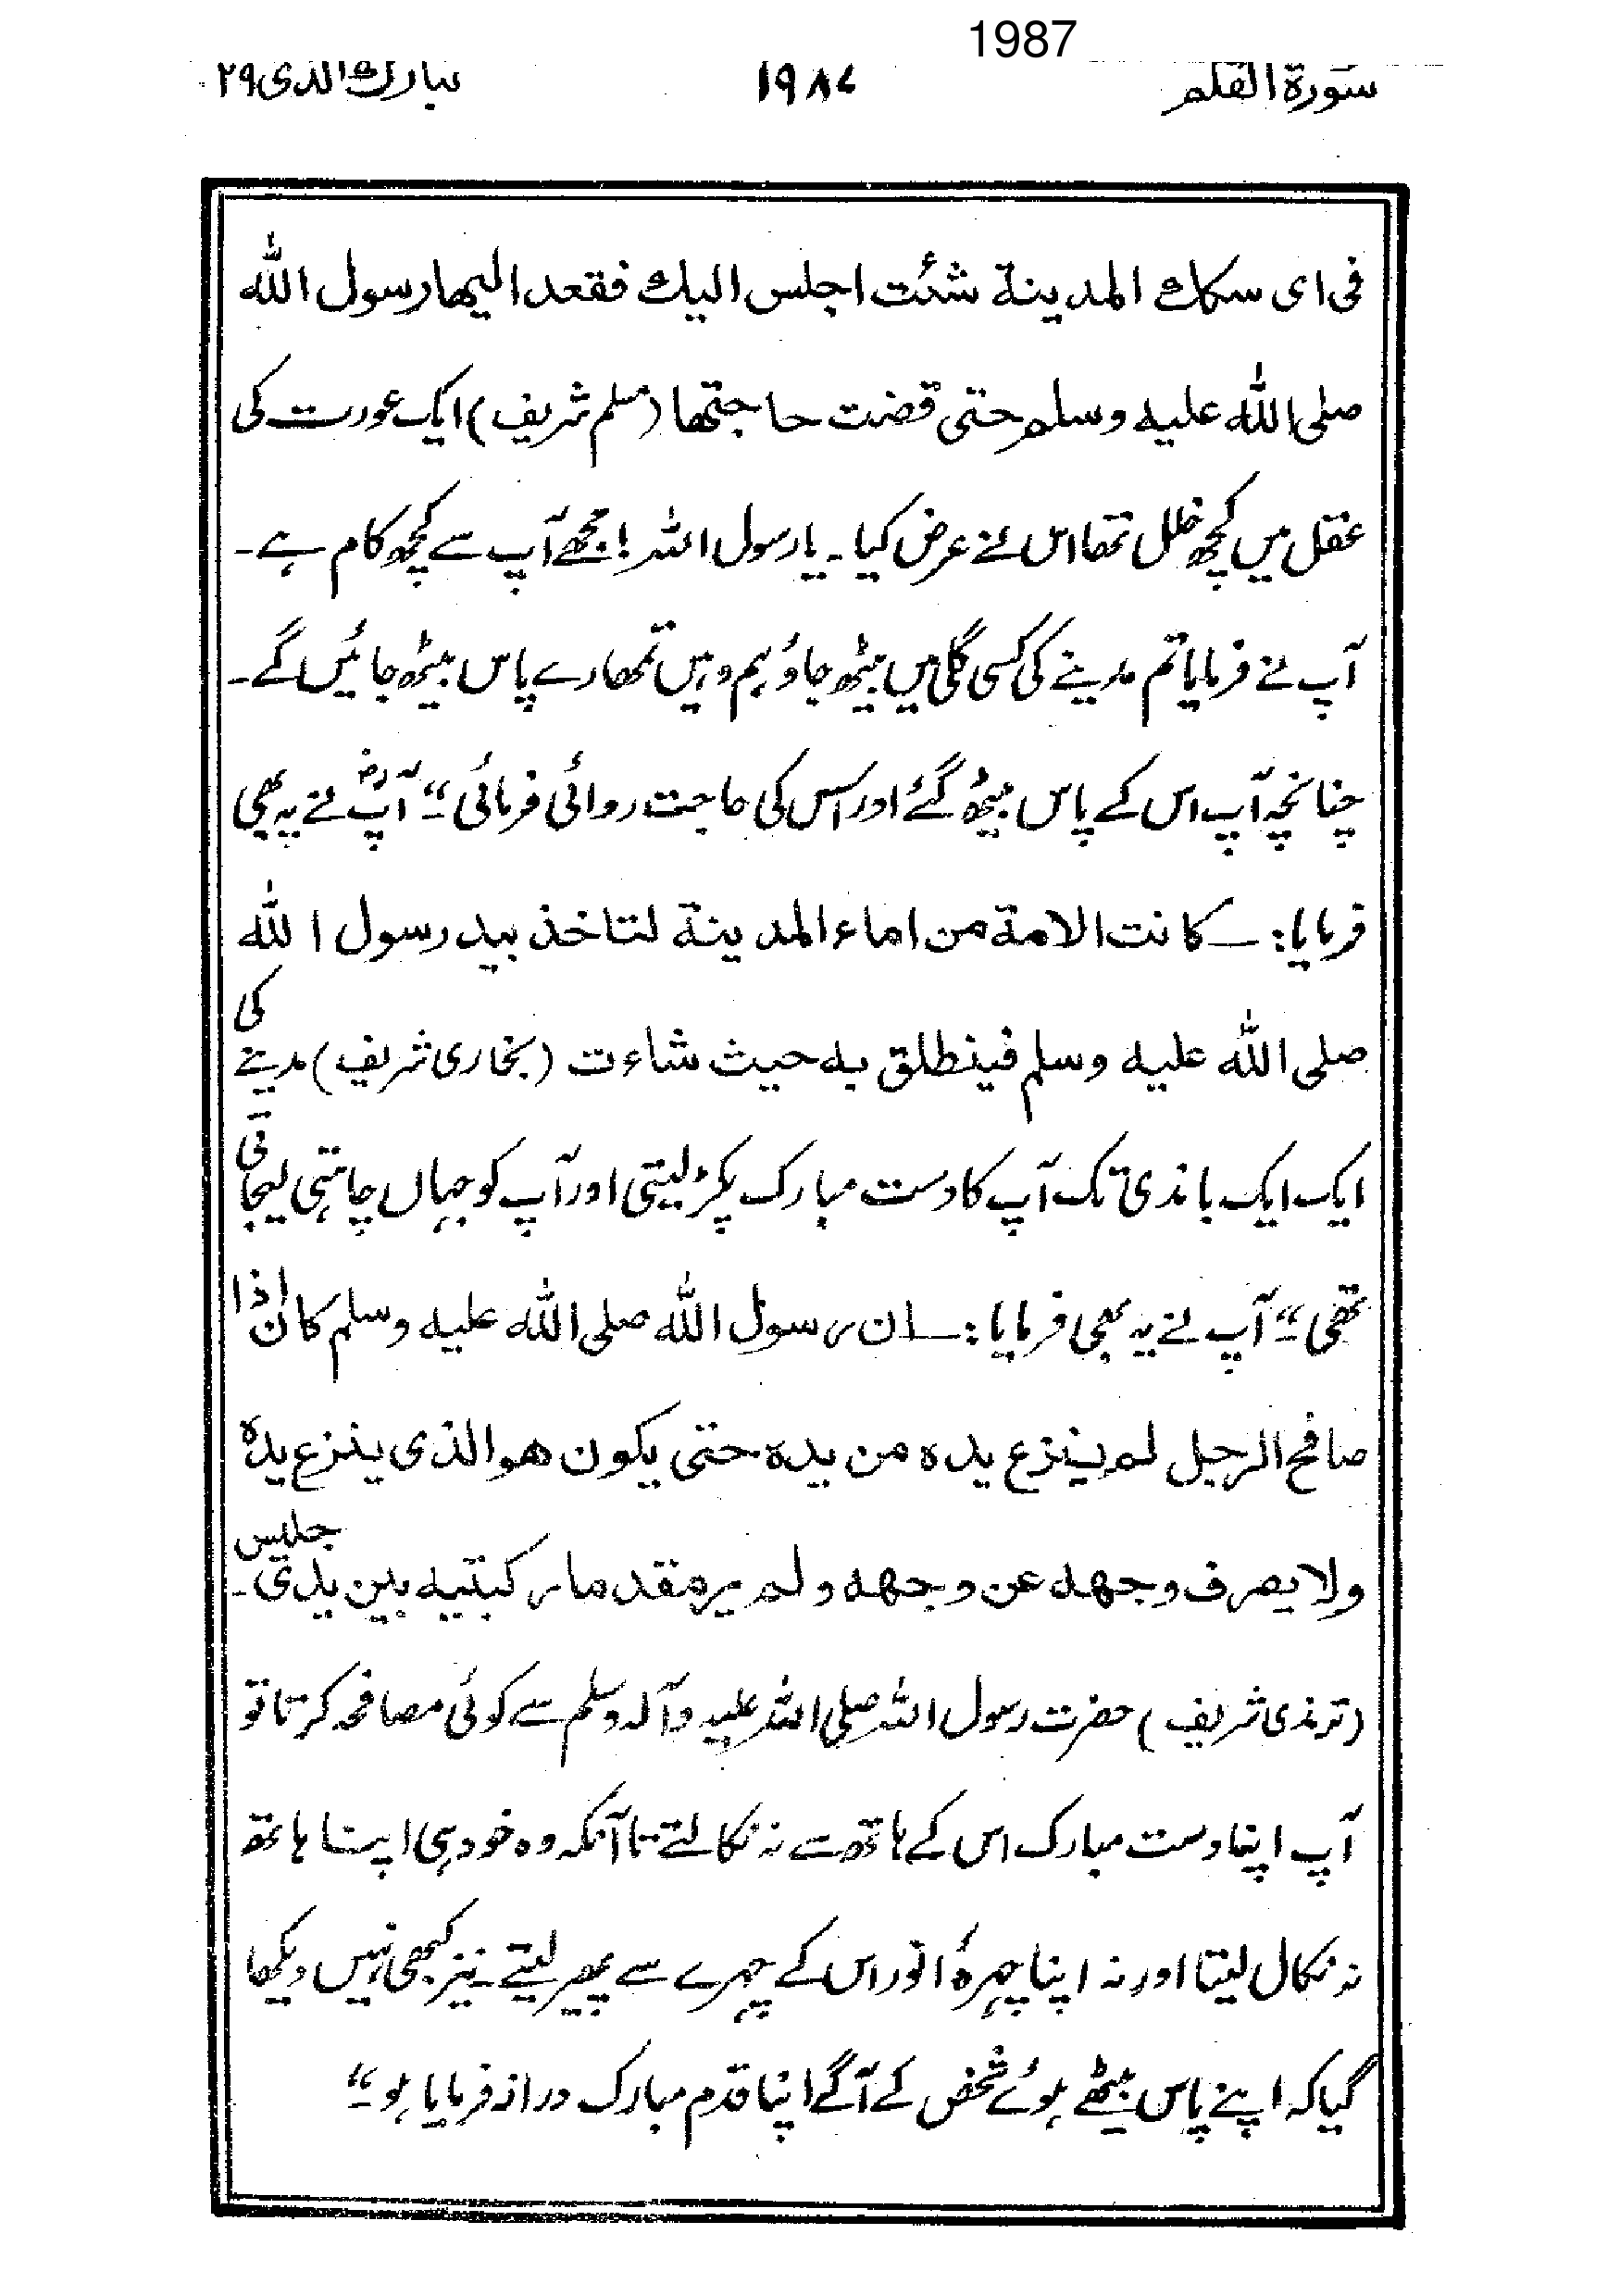 1987
سورة القلم ۱۹۸۷ تبارك الذی ۲۹
فی ای سكك المدينة شئت اجلس اليك فقعد اليها رسول الله
صلی الله عليه وسلم حتی قضت حاجتها (مسلم شریف) ایک عورت کی
عقل میں کچھ خلل تھا اس نے عرض کیا۔ یا رسول اللہ! مجھے آپ سے کچھ کام ہے۔
آپ نے فرمایا تم مدینے کی کسی گلی میں بیٹھ جاؤ ہم وہیں تمھارے پاس بیٹھ جائیں گے۔
چنانچہ آپ اس کے پاس بیٹھ گئے اور اس کی حاجت روائی فرمائی ‘‘ آپؓ نے یہ بھی
فرمایا :۔ كانت الامة من اماء المدينة لتاخذ بيد رسول الله
صلی الله عليه وسلم فينطلق به حيث شاءت (بخاری شریف) مدینے کی
ایک ایک باندی تک آپ کا دست مبارک پکڑ لیتی اور آپ کو جہاں چاہتی لیجاتی
تھی ‘‘ آپ نے یہ بھی فرمایا :۔ ان رسول الله صلی الله عليه وسلم كان اذا
صافح الرجل لم ينزع يده من يده حتی يكون هو الذی ينزع يده
ولا يصرف وجهه عن وجهه ولم ير مقدما ركبتيه بين يدی جليس۔
(ترمذی شریف) حضرت رسول اللہ صلی اللہ علیہ وآلہ وسلم سے کوئی مصافحہ کرتا تو
آپ اپنا دست مبارک اس کے ہاتھ سے نہ نکالتے تا آنکہ وہ خود ہی اپنا ہاتھ
نہ نکال لیتا اور نہ اپنا چہرۂ انور اس کے چہرے سے پھیر لیتے۔ نیز کبھی نہیں دیکھا
گیا کہ اپنے پاس بیٹھے ہوئے شخص کے آگے اپنا قدم مبارک دراز فرمایا ہو ‘‘